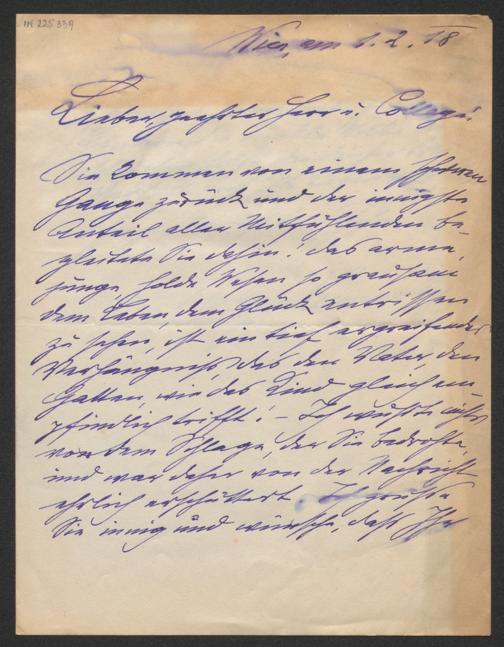 IN 225 339
Wien, am 1. 2. 18
Lieber, geehrter Herr u. College!
Sie kommen von einem schweren
Gange zurück und der innigste
Anteil aller Mitfühlenden be-
gleitete Sie dahin! das arme,
junge holde Wesen so grausam
dem Leben, dem Glück entrissen
zu sehen, ist ein tief ergreifendes
Verhängniß das den Vater, den
Gatten, wie das Kind gleich em-
pfindlich trifft! – Ich wußte nichts
von dem Schlage, der Sie bedrohte,
und war daher von der Nachricht
ehrlich erschüttert. Ich grüße
Sie innig und wünsche, daß Ihr